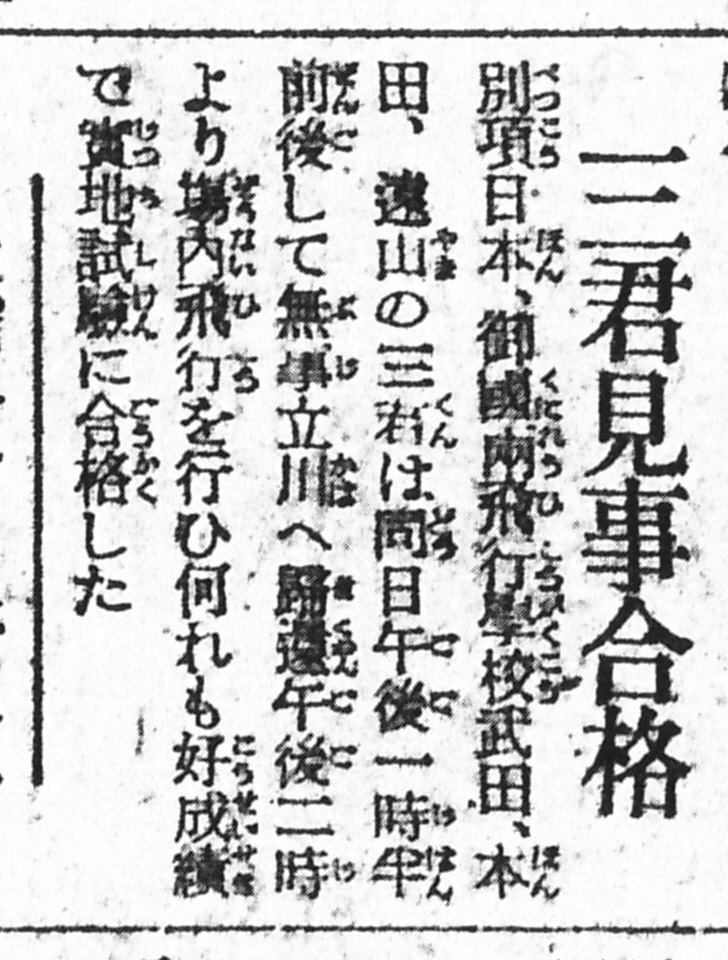 三君見事合格
別項日本、御國兩飛行學校武田、本
田、遠山の三君は同日午後一時半
前後して無事立川へ歸還午後二時
より場內飛行を行ひ何れも好成績
で實地試驗に合格した